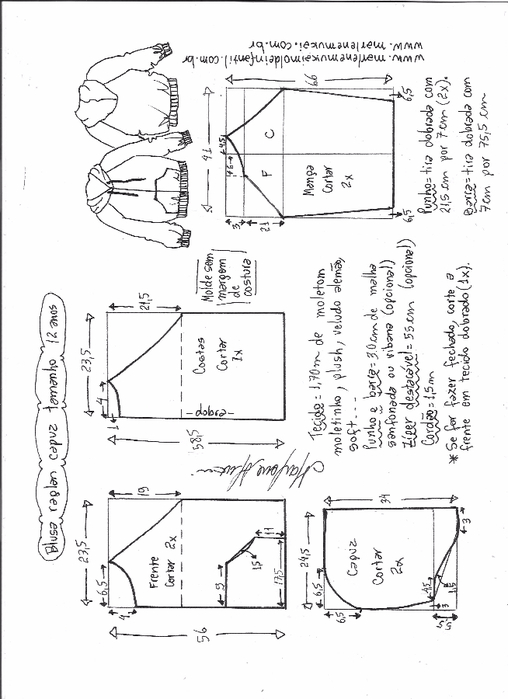 Blusa raglan capuz tamanho 12 anos
www.marlenemukaimoldeinfantil.com.br
www.marlenemukai.com.br
Molde sem
margem
de
costura
56
23,5
6,5
4
19
Frente
Cortar 2x
5
15
11
17,5
58,5
23,5
4
1
21,5
Costas
Cortar
1x
dobra
41
66
4,5
3
21
F
C
Manga
Cortar
2x
6,5
6,5
24,5
34
6,5
6,5
Capuz
Cortar
2x
4,5
3
1,5
3
5,5
Tecido = 1,70m de moletom
moletinho, plush, veludo alemão,
soft....
Punho e barra = 30cm de malha
sanfonada ou ribana (opcional)
Zíper destacável = 55cm (opcional)
Cordão = 1,5m
* Se for fazer fechado, corte a
frente em tecido dobrado (1x).
Punho = tira dobrada com
21,5 cm por 7cm (2x).
Barra = tira dobrada com
7cm por 75,5 cm